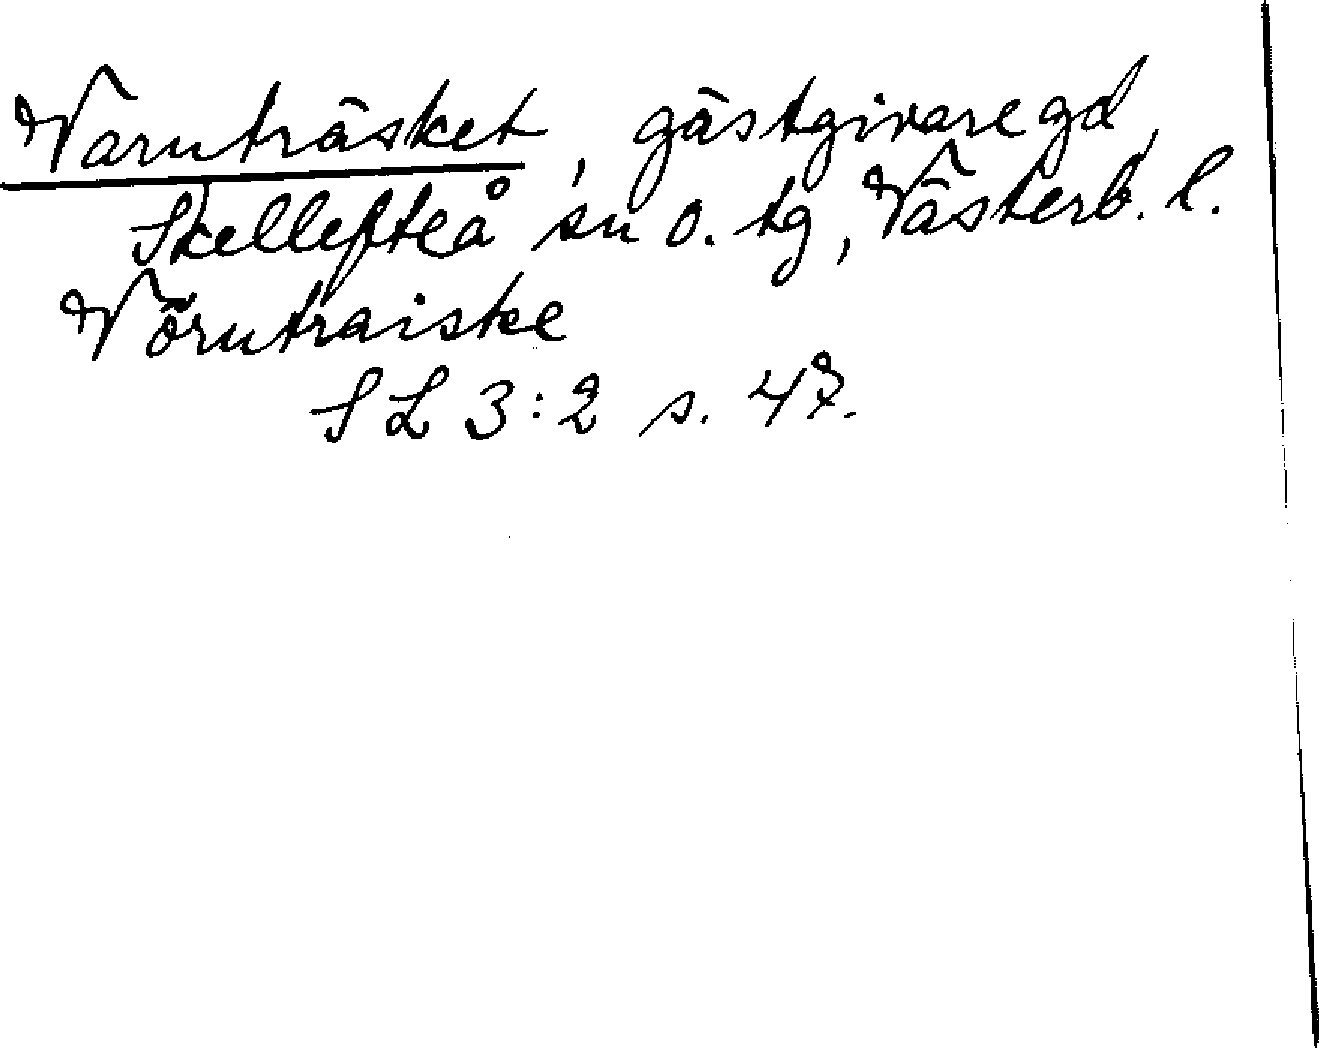 Varuträsket, gästgivaregd,
Skellefteå sn o. tg, Västerb. l.
Vöruträiske
S L 3:2 s. 47.